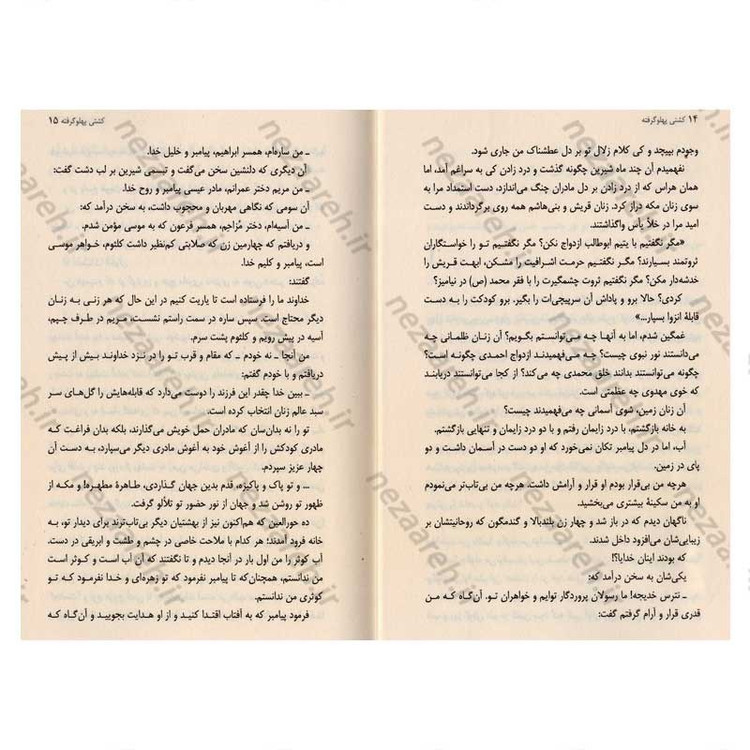 ۱۴ کشتی پهلوگرفته
وجودم بپیچد و کی کلام زلال تو بر دل عطشناک من جاری شود.
نفهمیدم آن چند ماه شیرین چگونه گذشت و درد زادن کی به سراغم آمد، اما
همان هراس که از درد زادن بر دل مادران چنگ می‌اندازد، دست استمداد مرا به
سوی زنان مکه دراز کرد. زنان قریش و بنی‌هاشم همه روی برگرداندند و دست
امید مرا در خلأ یأس واگذاشتند.
«مگر نگفتیم با یتیم ابوطالب ازدواج نکن؟ مگر نگفتیم تو را خواستگاران
ثروتمند بسیارند؟ مگر نگفتیم حرمت اشرافیت را مشکن، ابهت قریش را
خدشه‌دار مکن؟ مگر نگفتیم ثروت چشمگیرت را با فقر محمد (ص) در نیامیز؟
کردی؟ حالا برو و پاداش آن سرپیچی‌ات را بگیر. برو کودکت را به دست
قابلهٔ انزوا بسپار...»
غمگین شدم، اما به آنها چه می‌توانستم بگویم؟ آن زنان ظلمانی چه
می‌دانستند نور نبوی چیست؟ چه می‌فهمیدند ازدواج احمدی چگونه است؟
چگونه می‌توانستند بدانند خلق محمدی چه می‌کند؟ از کجا می‌توانستند دریابند
که خوی مهدوی چه عظمتی است.
آن زنان زمین، شوی آسمانی چه می‌فهمیدند چیست؟
به خانه بازگشتم، با درد زایمان رفتم و با دو درد زایمان و تنهایی بازگشتم.
آب، اما در دل پیامبر تکان نمی‌خورد که او دو دست در آسمان داشت و دو
پای در زمین.
هرچه من بی‌قرار بودم او قرار و آرامش داشت. هرچه من بی‌تاب‌تر می‌نمودم
او به من سکینهٔ بیشتری می‌بخشید.
ناگهان دیدم که در باز شد و چهار زن بلندبالا و گندمگون که روحانیتشان بر
زیبایی‌شان می‌افزود داخل شدند.
که بودند اینان خدایا؟!
یکی‌شان به سخن درآمد که:
ـ نترس خدیجه! ما رسولان پروردگار توایم و خواهران تو. آن‌گاه که من
قدری قرار و آرام گرفتم گفت:
کشتی پهلوگرفته ۱۵
ـ من ساره‌ام، همسر ابراهیم، پیامبر و خلیل خدا.
آن دیگری که دلنشین سخن می‌گفت و تبسمی شیرین بر لب داشت گفت:
ـ من مریم دختر عمرانم، مادر عیسی پیامبر و روح خدا.
آن سومی که نگاهی مهربان و محجوب داشت، به سخن درآمد که:
ـ من آسیه‌ام، دختر مُزاحِم، همسر فرعون که به موسی مؤمن شدم.
و دریافتم که چهارمین زن که صلابتی کم‌نظیر داشت کلثوم، خواهر موسی
است، پیامبر و کلیم خدا.
گفتند:
خداوند ما را فرستاده است تا یاریت کنیم در این حال که هر زنی به زنان
دیگر محتاج است. سپس ساره در سمت راستم نشست، مریم در طرف چپم،
آسیه در پیش رویم و کلثوم پشت سرم.
من آنجا ـ نه خودم ـ که مقام و قرب تو را در نزد خداوند بیش از پیش
دریافتم و با خودم گفتم:
ـ ببین خدا چقدر این فرزند را دوست می‌دارد که قابله‌هایش را گل‌های سر
سبد عالم زنان انتخاب کرده است.
تو را نه بدان‌سان که مادران حمل خویش می‌گذارند، بلکه بدان فراغت که
مادری کودکش را از آغوش خود به آغوش مادری دیگر می‌سپارد، به دست آن
چهار عزیز سپردم.
ـ و تو پاک و پاکیزه، قدم بدین جهان گذاردی، طاهرهٔ مطهره! و مکه از
ظهور تو روشن شد و جهان از نور حضور تو تلألو گرفت.
ده حورالعین که هم‌اکنون نیز از بهشتیان دیگر بی‌تاب‌ترند برای دیدار تو، به
خانه فرود آمدند؛ هر کدام با ملاحت خاصی در چشم و طشت و ابریقی در دست.
آب کوثر را من اول بار در آنجا دیدم و تا نگفتند که آن آب است و کوثر است
من ندانستم، همچنان‌که تا پیامبر نفرمود که تو زهره‌ای و خدا نفرمود که تو
کوثری من ندانستم.
فرمود پیامبر که به آفتاب اقتدا کنید و از او هدایت بجویید و آن‌گاه که
nezaareh.ir